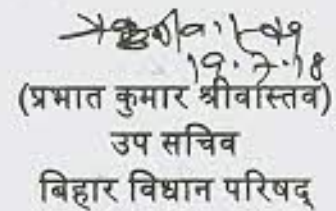 19.7.18
(प्रभात कुमार श्रीवास्तव)
उप सचिव
बिहार विधान परिषद्